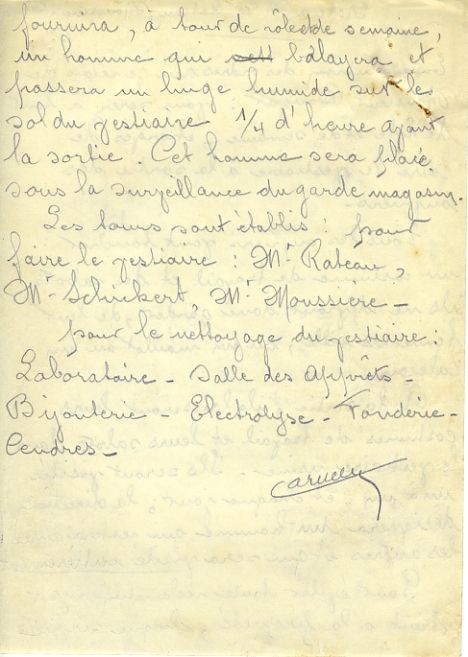 fournira, à tour de rôle et de semaine,
un homme qui balayera et
passera un linge humide sur le
sol du vestiaire 1/4 d'heure avant
la sortie. Cet homme sera placé
sous la surveillance du garde magasin.
Les tours sont établis : pour
faire le vestiaire : Mr Rateau,
Mr Schickert, Mr Moussiere -
pour le nettoyage du vestiaire :
Laboratoire - Salle des Apprêts -
Bijouterie - Electrolyse - Fonderie -
Cendres -